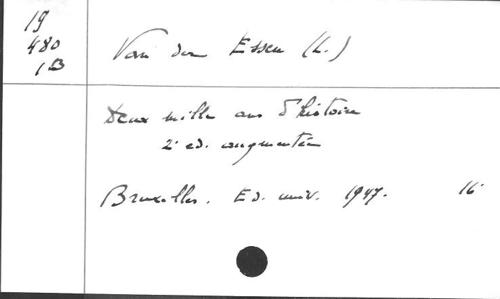 19
480
1B
Van der Essen (L.)
Deux mille ans d'histoire
2e ed. augmentée
Bruxelles. Ed. univ. 1947.
16°